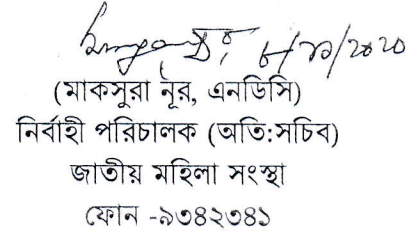 (মাকসুরা নূর, এনডিসি)
নির্বাহী পরিচালক (অতি:সচিব)
জাতীয় মহিলা সংস্থা
ফোন -৯৩৪২৩৪১